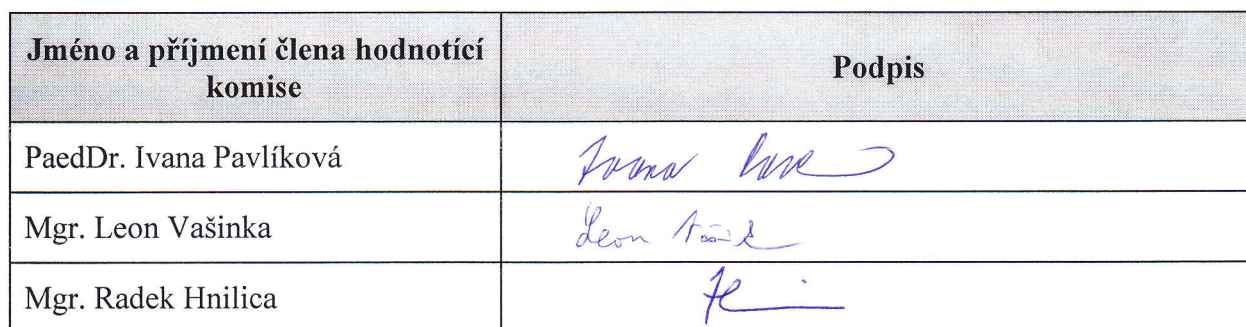 Jméno a příjmení člena hodnotící
komise
Podpis
PaedDr. Ivana Pavlíková
Ivana
Mgr. Leon Vašinka
Leon
Mgr. Radek Hnilica